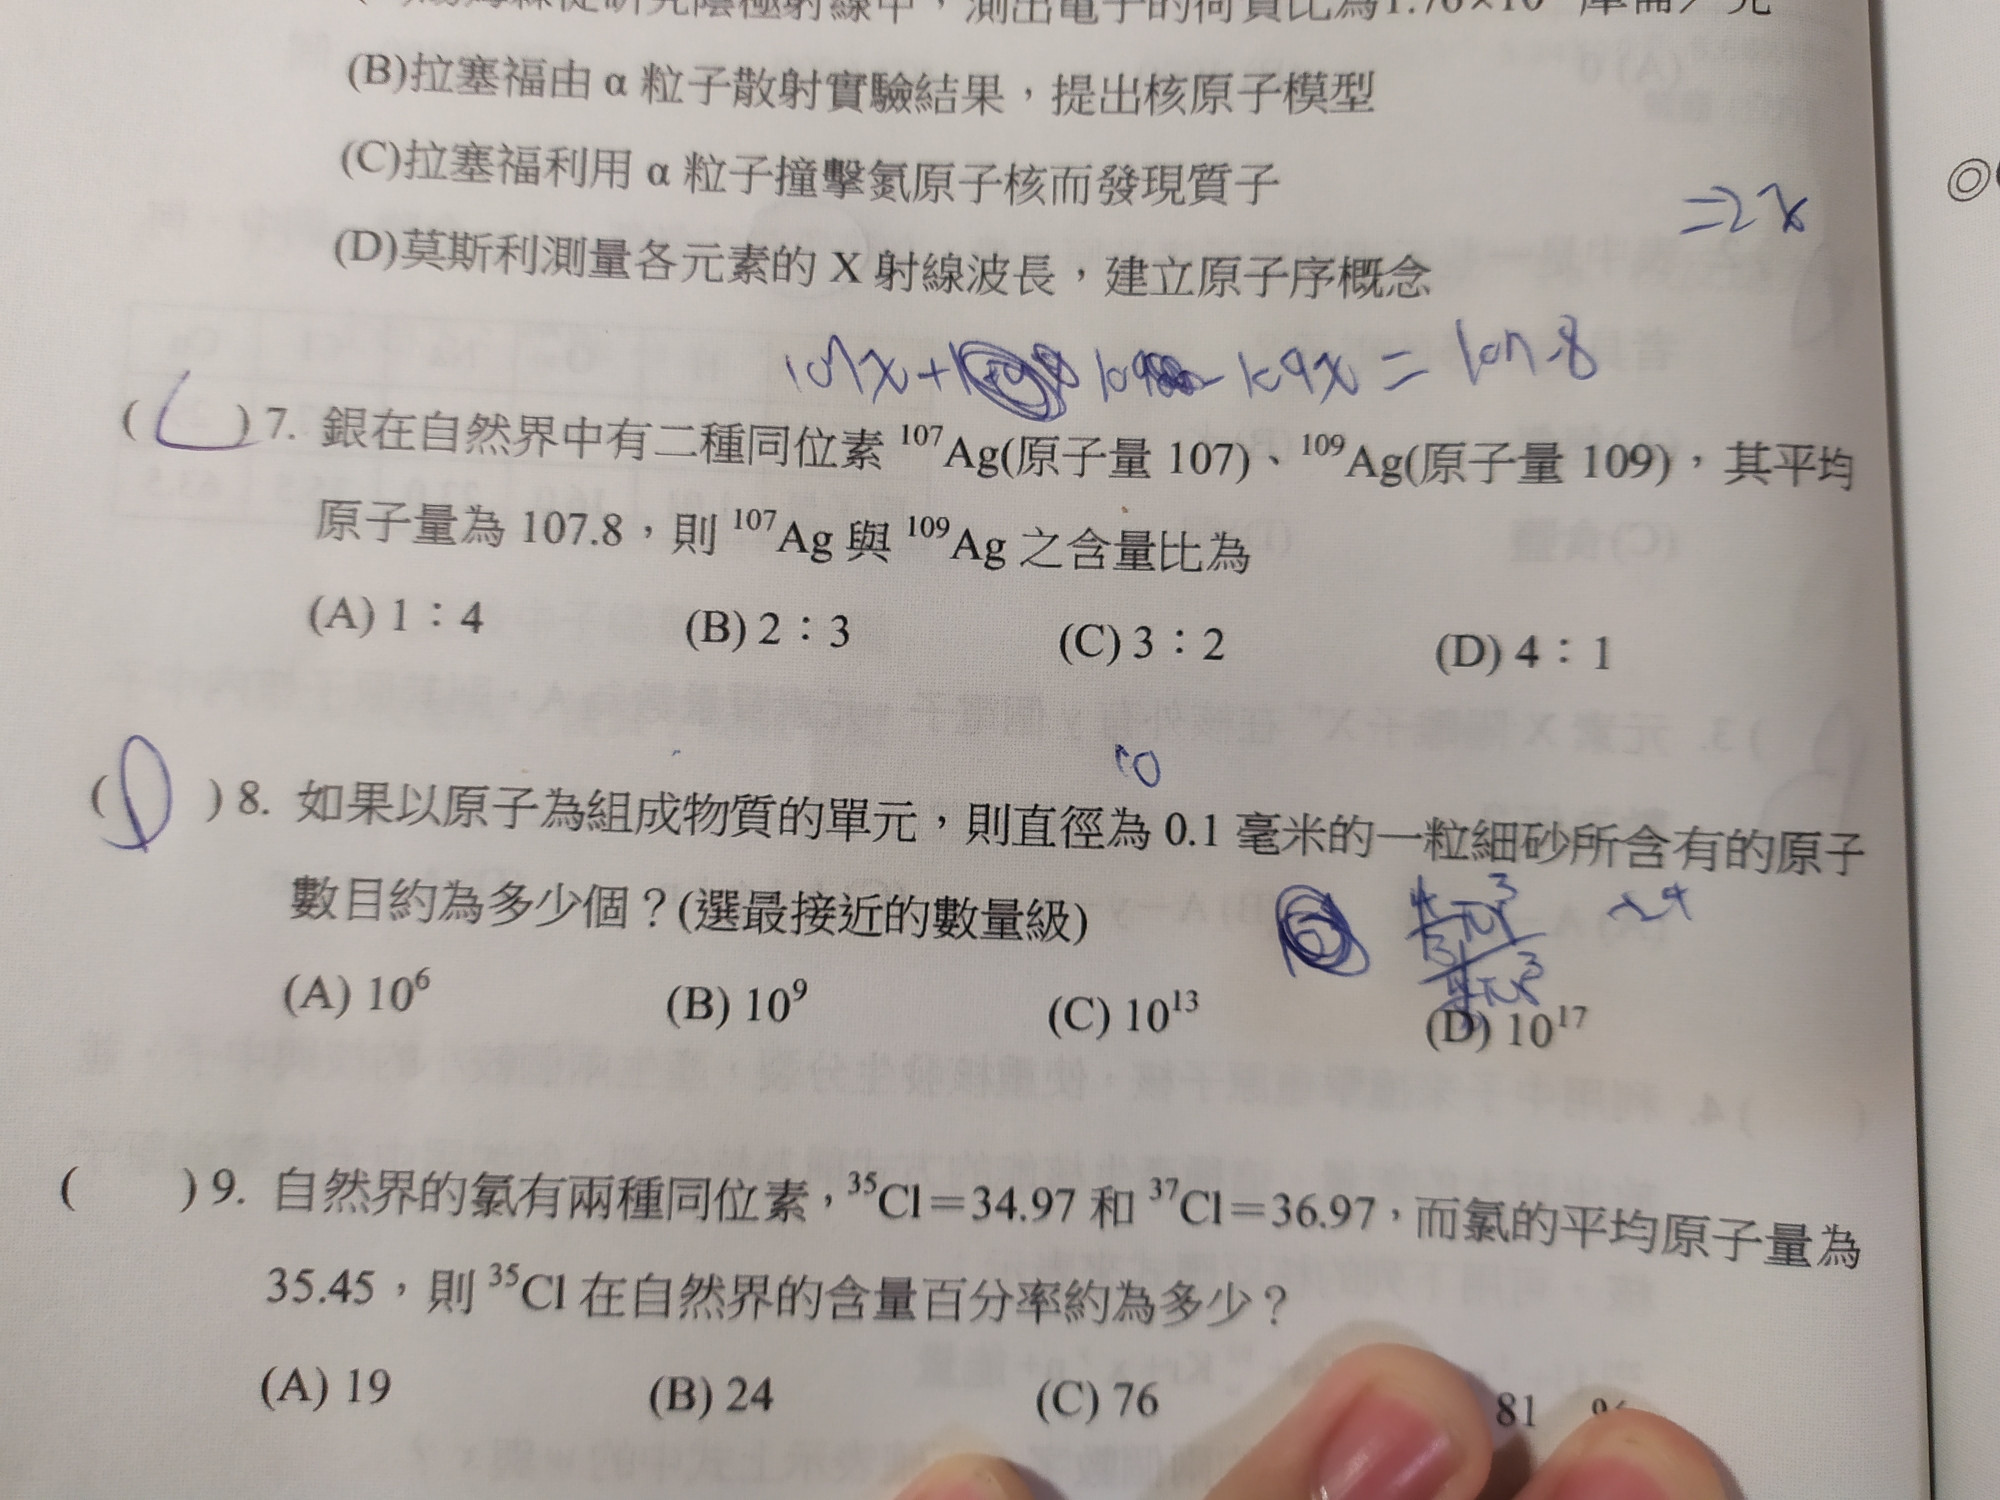 測出電子的荷質比為1.76×10
(B)拉塞福由 α 粒子散射實驗結果，提出核原子模型
(C)拉塞福利用 α 粒子撞擊氮原子核而發現質子
=2x
(D)莫斯利測量各元素的 X 射線波長，建立原子序概念
107x+ 109 - 109x = 107.8
( C )7. 銀在自然界中有二種同位素 ¹⁰⁷Ag(原子量 107)、¹⁰⁹Ag(原子量 109)，其平均
原子量為 107.8，則 ¹⁰⁷Ag 與 ¹⁰⁹Ag 之含量比為
(A) 1：4 (B) 2：3 (C) 3：2 (D) 4：1
10
( D )8. 如果以原子為組成物質的單元，則直徑為 0.1 毫米的一粒細砂所含有的原子
數目約為多少個？(選最接近的數量級)
(A) 10⁶ (B) 10⁹ (C) 10¹³ (D) 10¹⁷
( )9. 自然界的氯有兩種同位素，³⁵Cl＝34.97 和 ³⁷Cl＝36.97，而氯的平均原子量為
35.45，則 ³⁵Cl 在自然界的含量百分率約為多少？
(A) 19 (B) 24 (C) 76 81 %